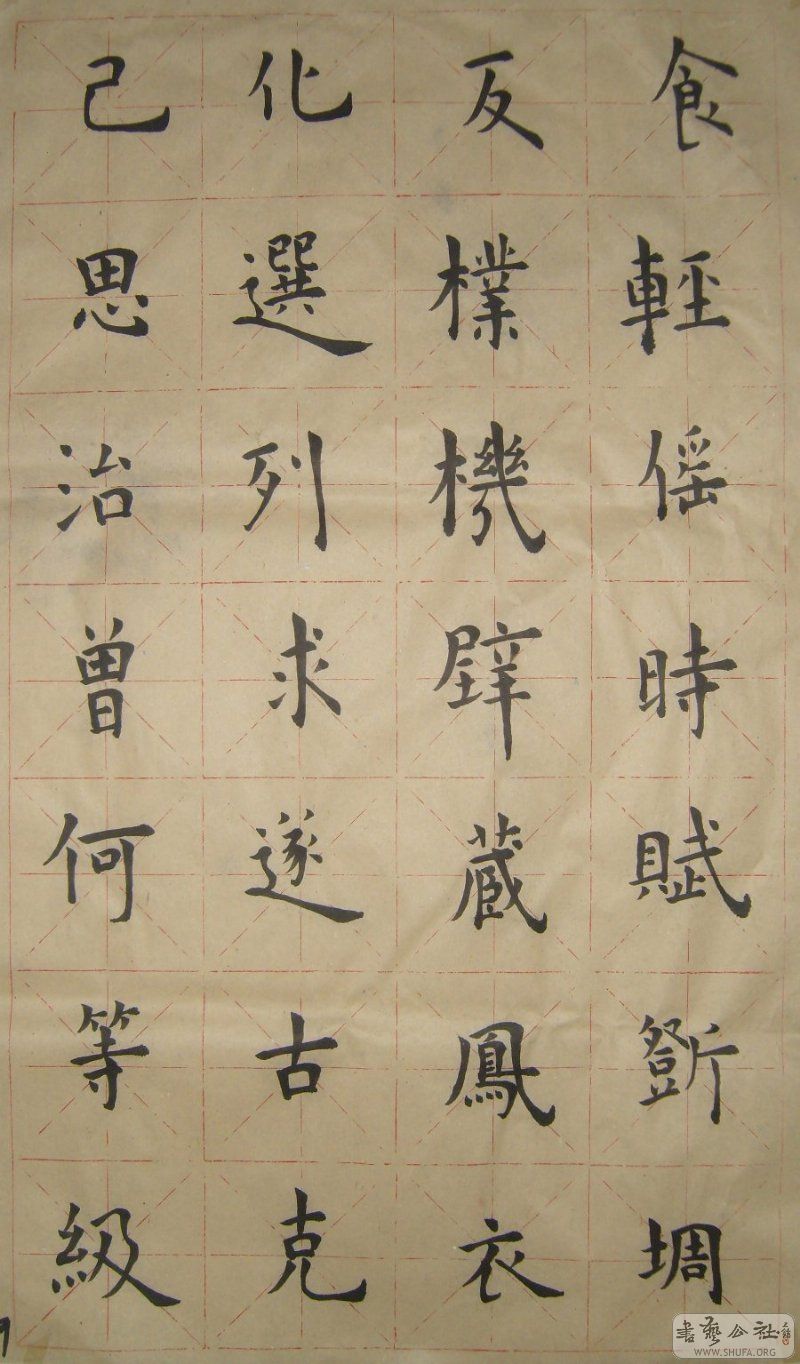 食輕傜時賦斲琱
反樸機璧藏鳳衣
化選列求遂古克
己思治曾何等級
書藝公社
WWW.SHUFA.ORG